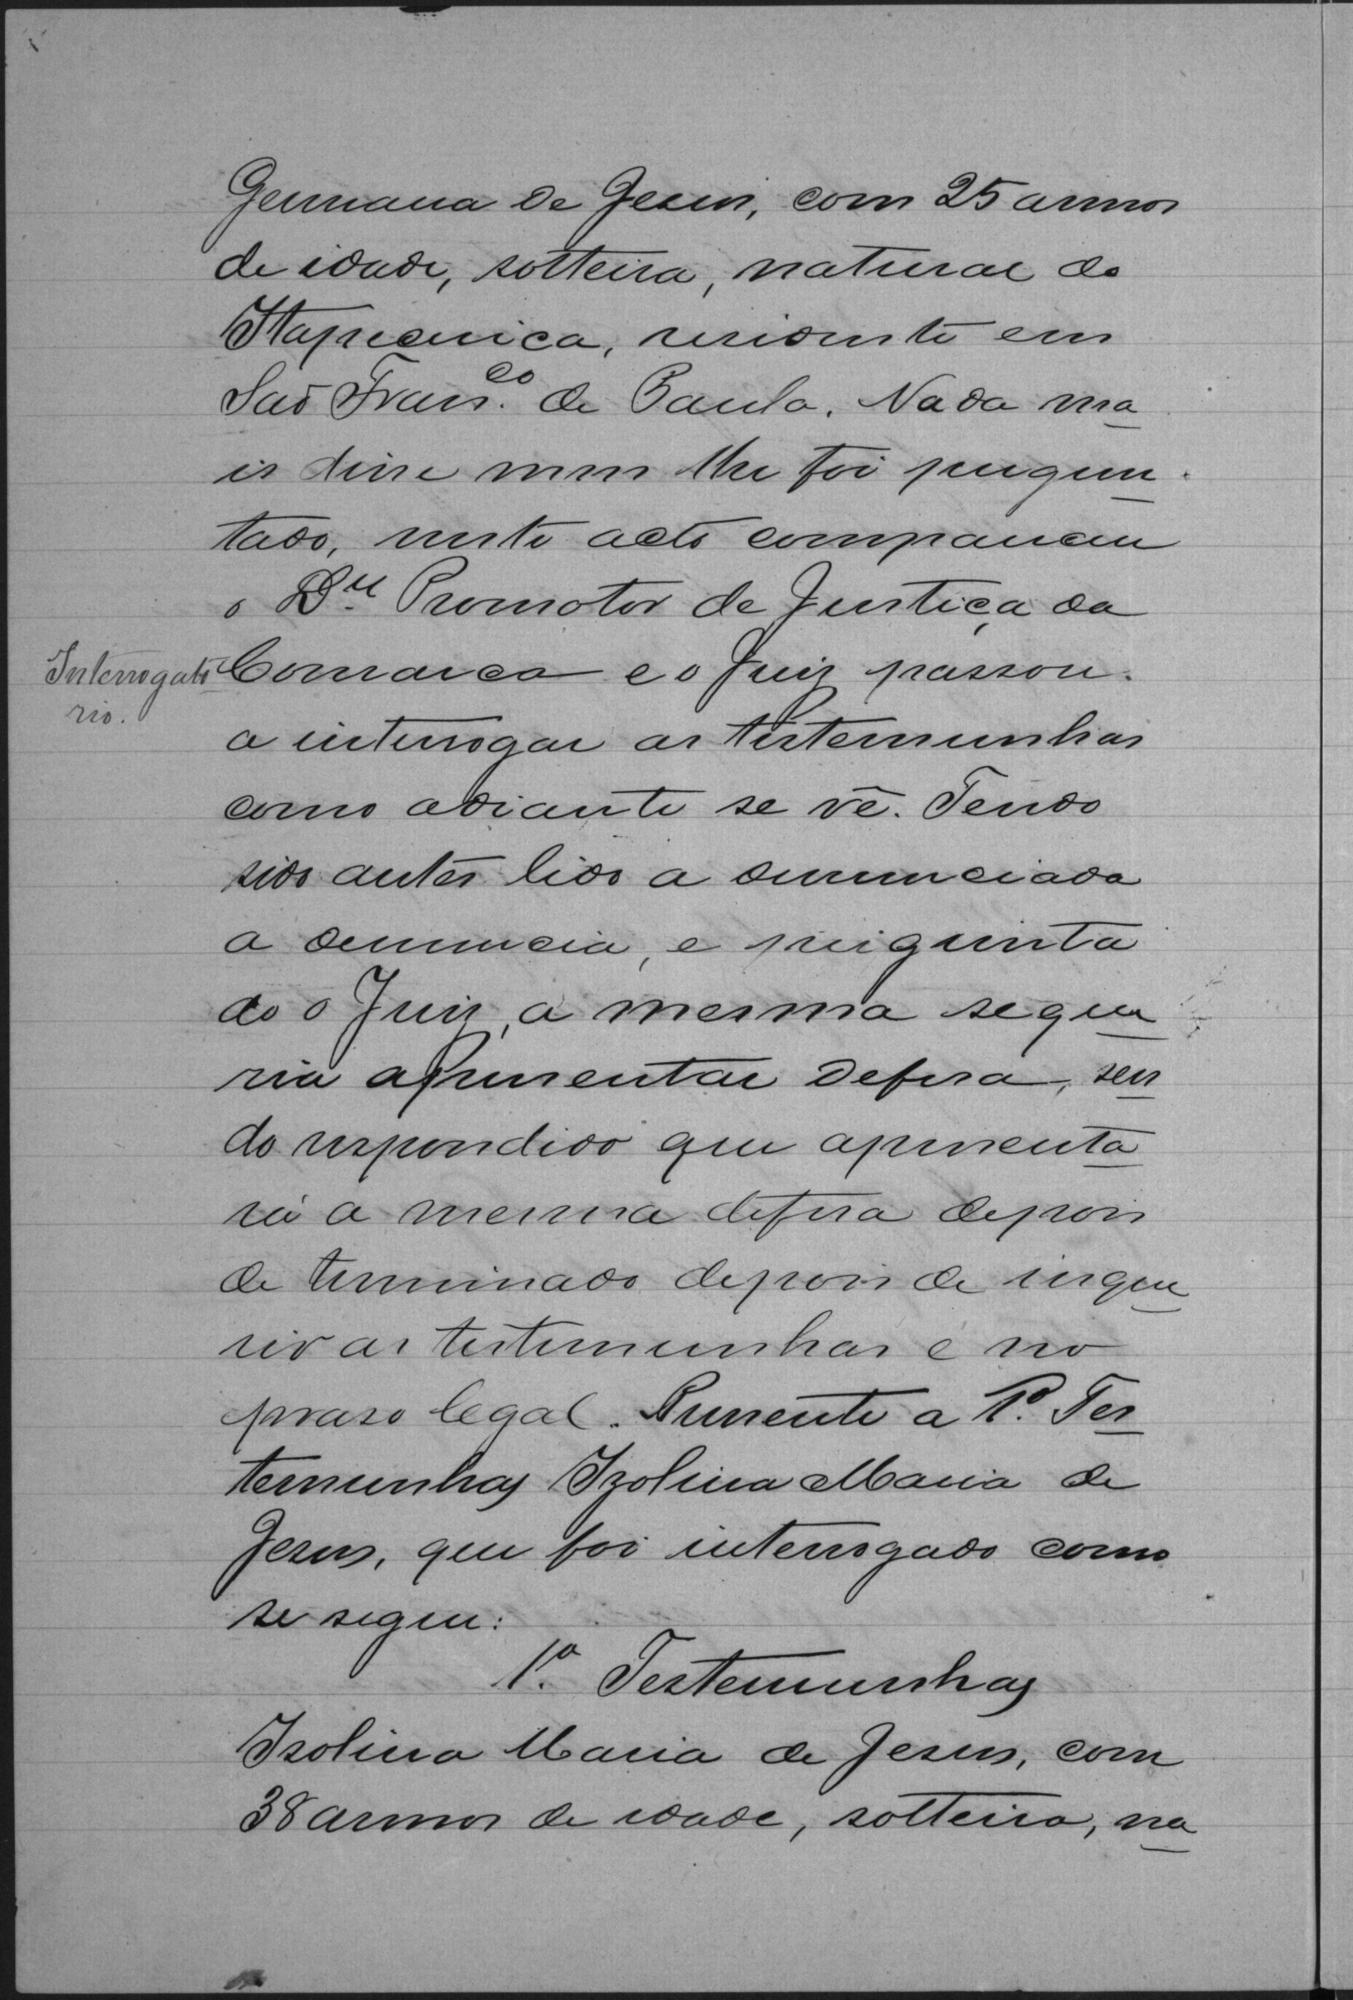 Germana de Jesus, com 25 annos
de idade, solteira, natural de
Itapecirica, residente em
São Fran.co de Paula. Nada ma
is disse nem lhe foi pergun
tado, neste acto compareceu
o Dr. Promotor de Justiça da
Interrogato
rio.
Comarca e o Juiz passou
a interrogar as testemunhas
como adiante se vê. Tendo
sido antes lido a denunciada
a denuncia, e pergunta
do o Juiz, a mesma se que
ria apresentar defesa, sen
do respondido que apresenta
ria a mesma defesa depois
de terminado depois de inque
rir as testemunhas e no
praso legal. Presente a 1ª Tes
temunhas Izolina Maria de
Jesus, que foi interrogado como
se segue:
1ª Testemunhas
Izolina Maria de Jesus, com
38 annos de idade, solteira, na